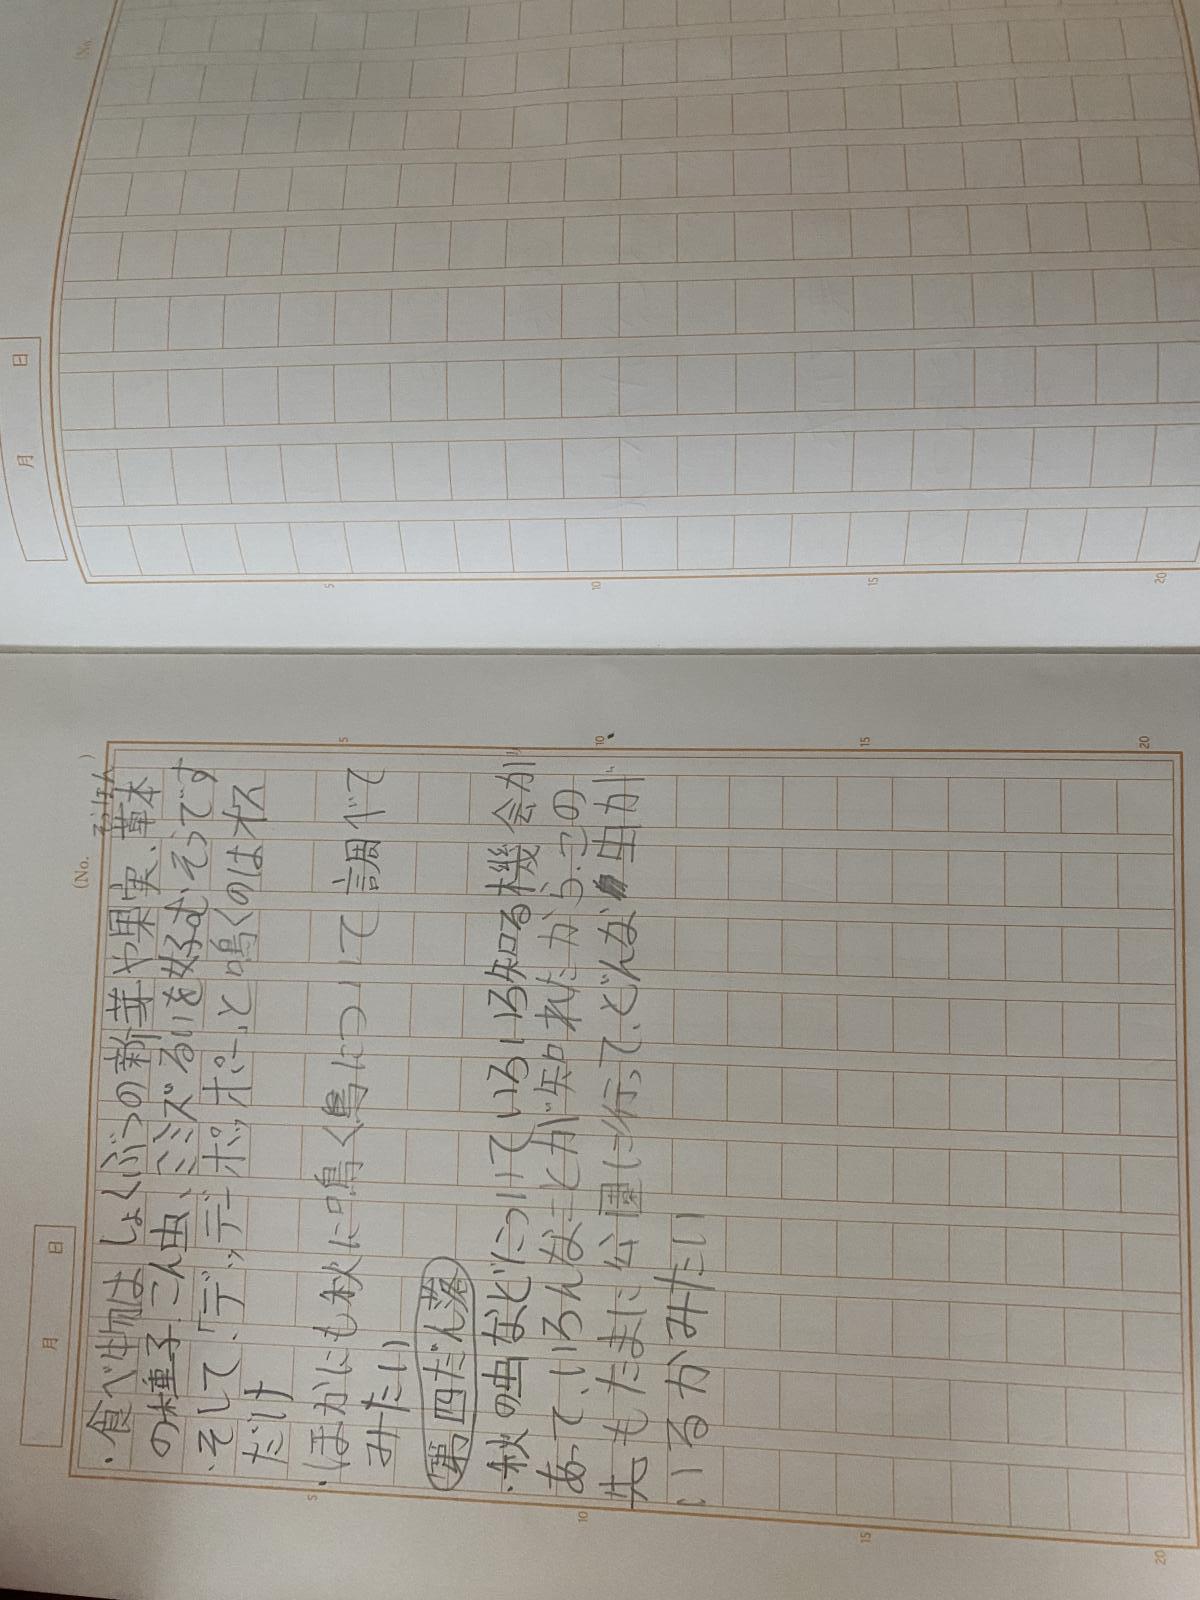 (No. )
月 日
そうほん
・食べ物は しょくぶつの新芽や果実、草本
の種子、こん虫、ミミズるいを好むそうです
・そして、「デッデーポッポー」と鳴くのはオス
だけ
・ほかにも秋に鳴く鳥について調べて
みたい
第四だん落
・秋の虫などについていろいろ知る機会が
あって、いろんなことが知れたから、この
先もたまに公園に行って、どんな虫が
いるかみたい
5
10
15
20
5
10
15
20
(No.
月 日
5
10
15
20